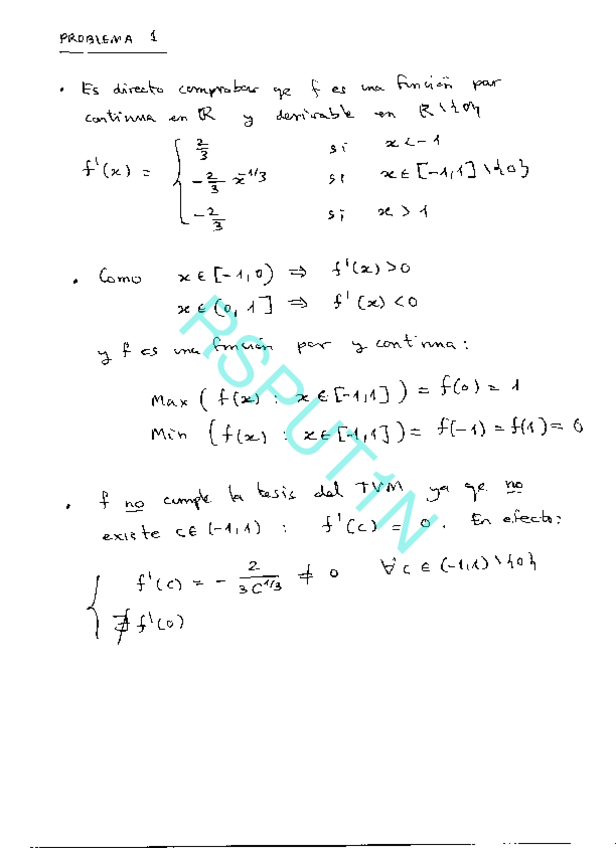 PROBLEMA 1
• Es directo comprobar qe f es una función par
continua en ℝ y derivable en ℝ\{0}
f'(x) = { 2/3 si x < -1
-2/3 x^{-1/3} si x ∈ [-1,1]\{0}
-2/3 si x > 1
• Como x ∈ [-1,0) ⇒ f'(x) > 0
x ∈ (0,1] ⇒ f'(x) < 0
y f es una función par y continua:
Max (f(x) : x ∈ [-1,1]) = f(0) = 1
Min (f(x) : x ∈ [-1,1]) = f(-1) = f(1) = 0
• f no cumple la tesis del TVM ya qe no
existe c ∈ (-1,1) : f'(c) = 0. En efecto:
{ f'(c) = - 2/(3 c^{1/3}) ≠ 0 ∀ c ∈ (-1,1)\{0}
∄ f'(0)
RSPUT1N